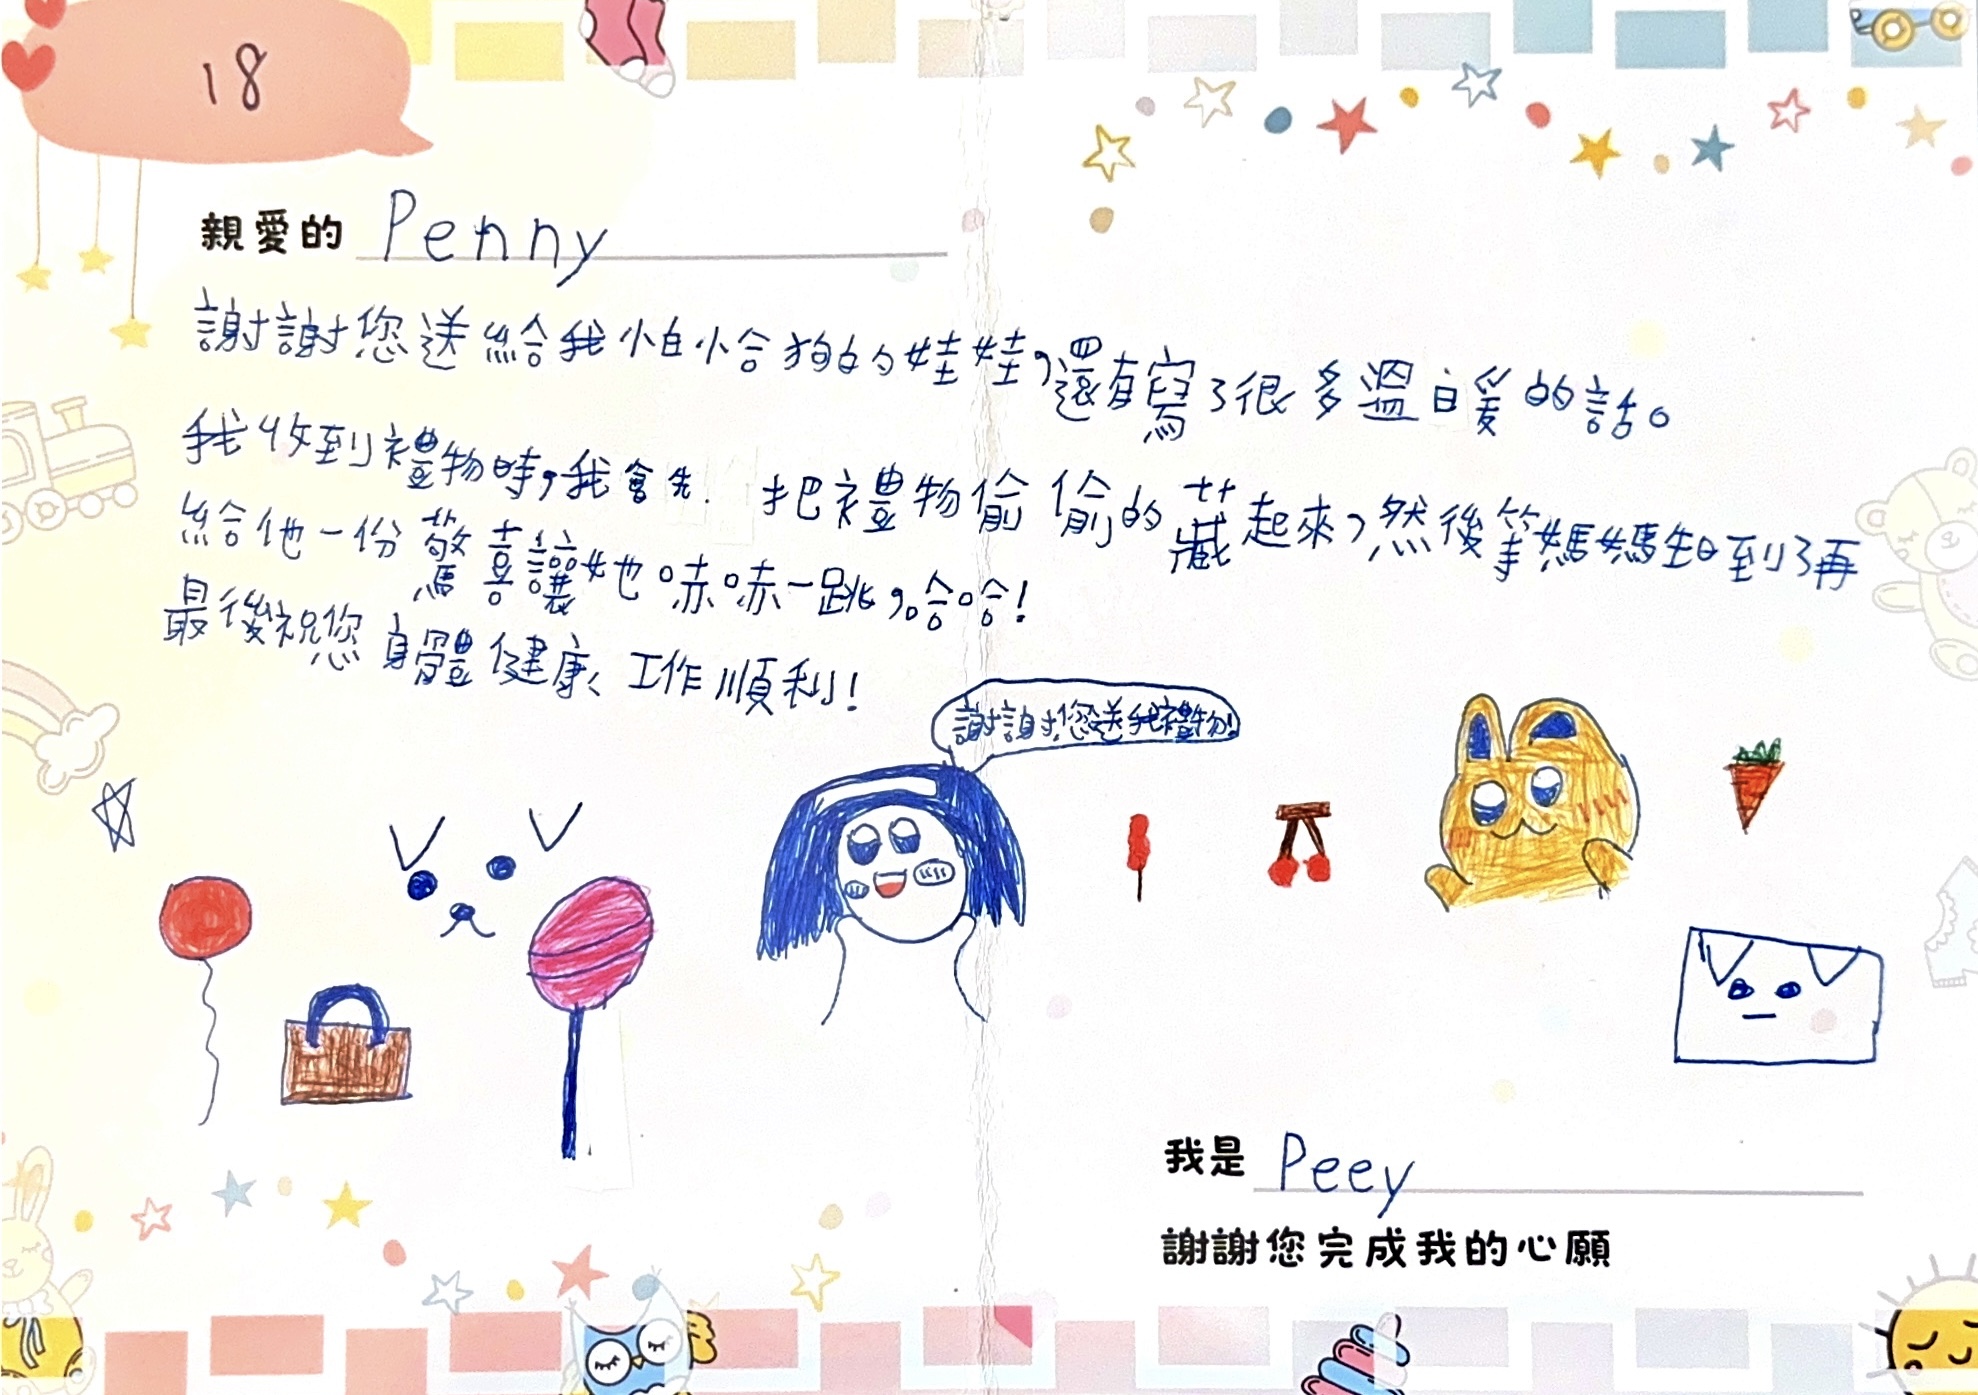 18
親愛的 Penny
謝謝您送給我怕怕狗的娃娃，還有寫了很多溫暖的話。
我收到禮物時，我會先把禮物偷偷的藏起來，然後等媽媽生日到了再
給他一份驚喜讓她嚇嚇一跳，哈哈！
最後祝您身體健康、工作順利！
謝謝您送我禮物！
我是 Peey
謝謝您完成我的心願